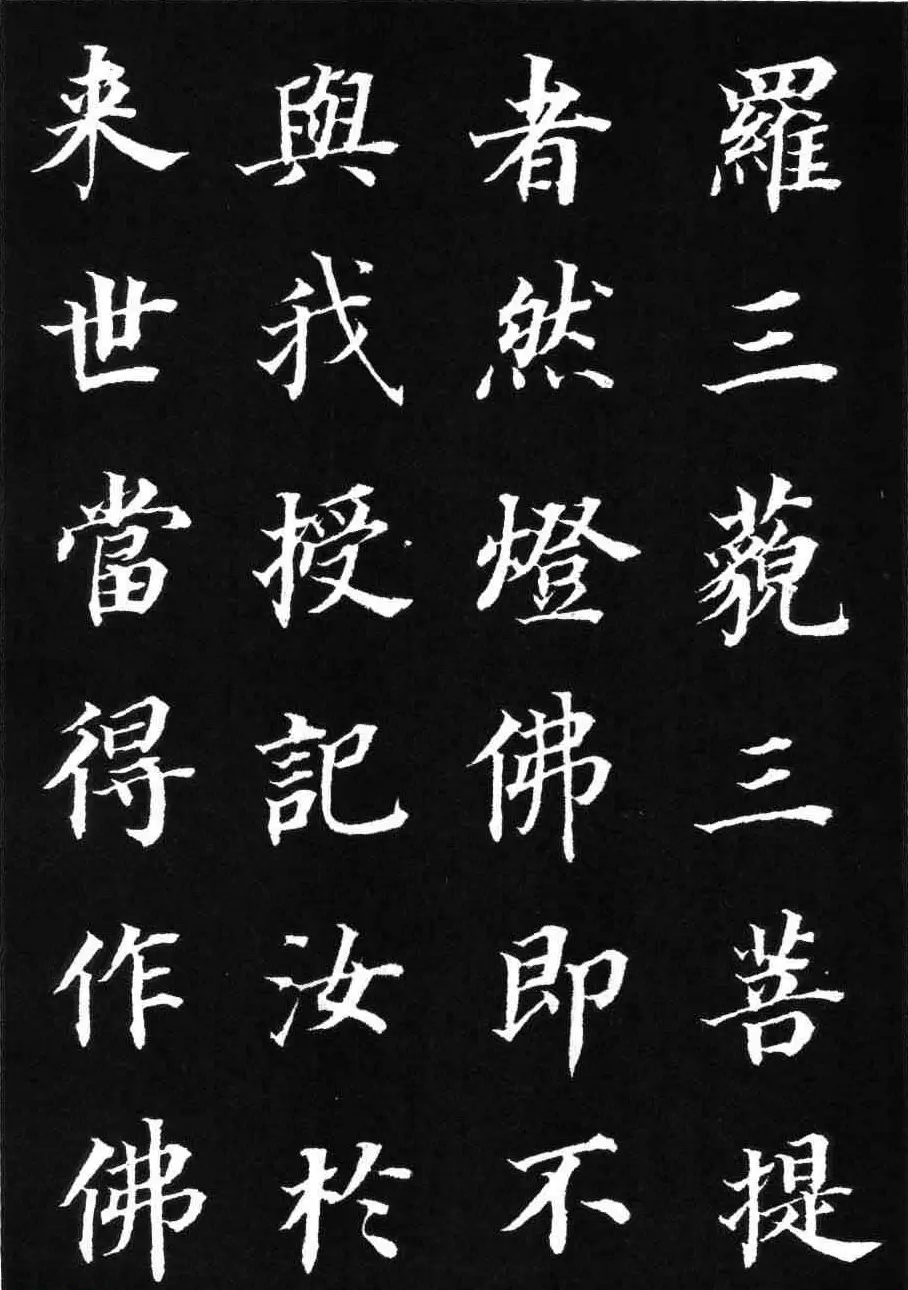 羅三藐三菩提
者然燈佛即不
與我授記汝於
来世當得作佛